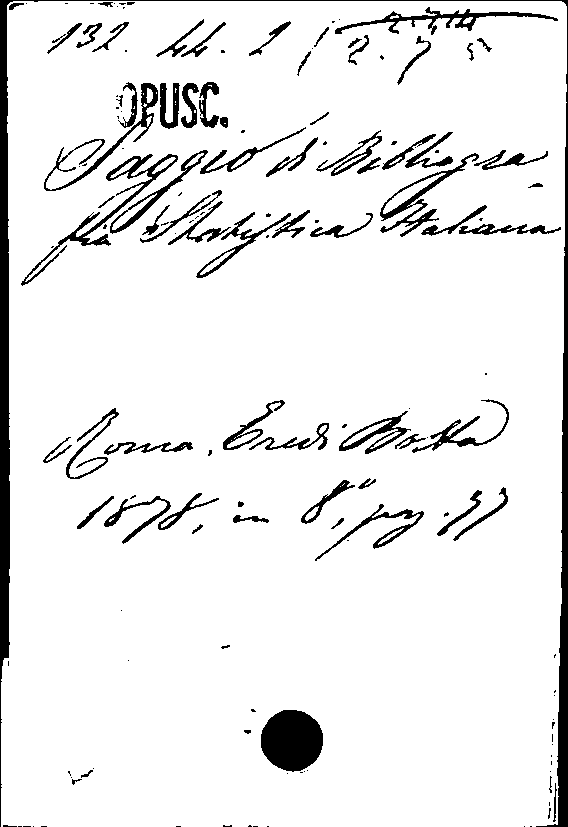 132. 44. 2
2. 7 5
OPUSC.
Saggio di Bibliogra-
fia Statistica Italiana
Roma, Eredi Botta
1878, in 8°, pag.